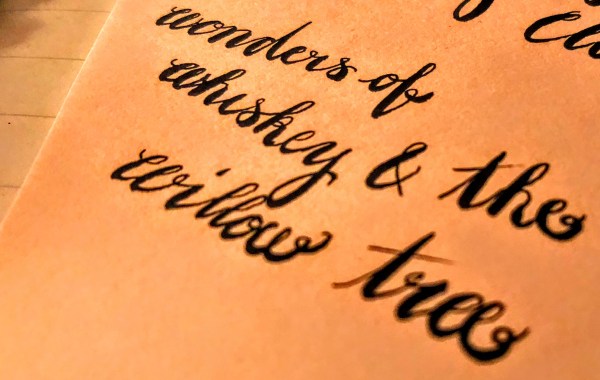 wonders of
whiskey & the
willow tree